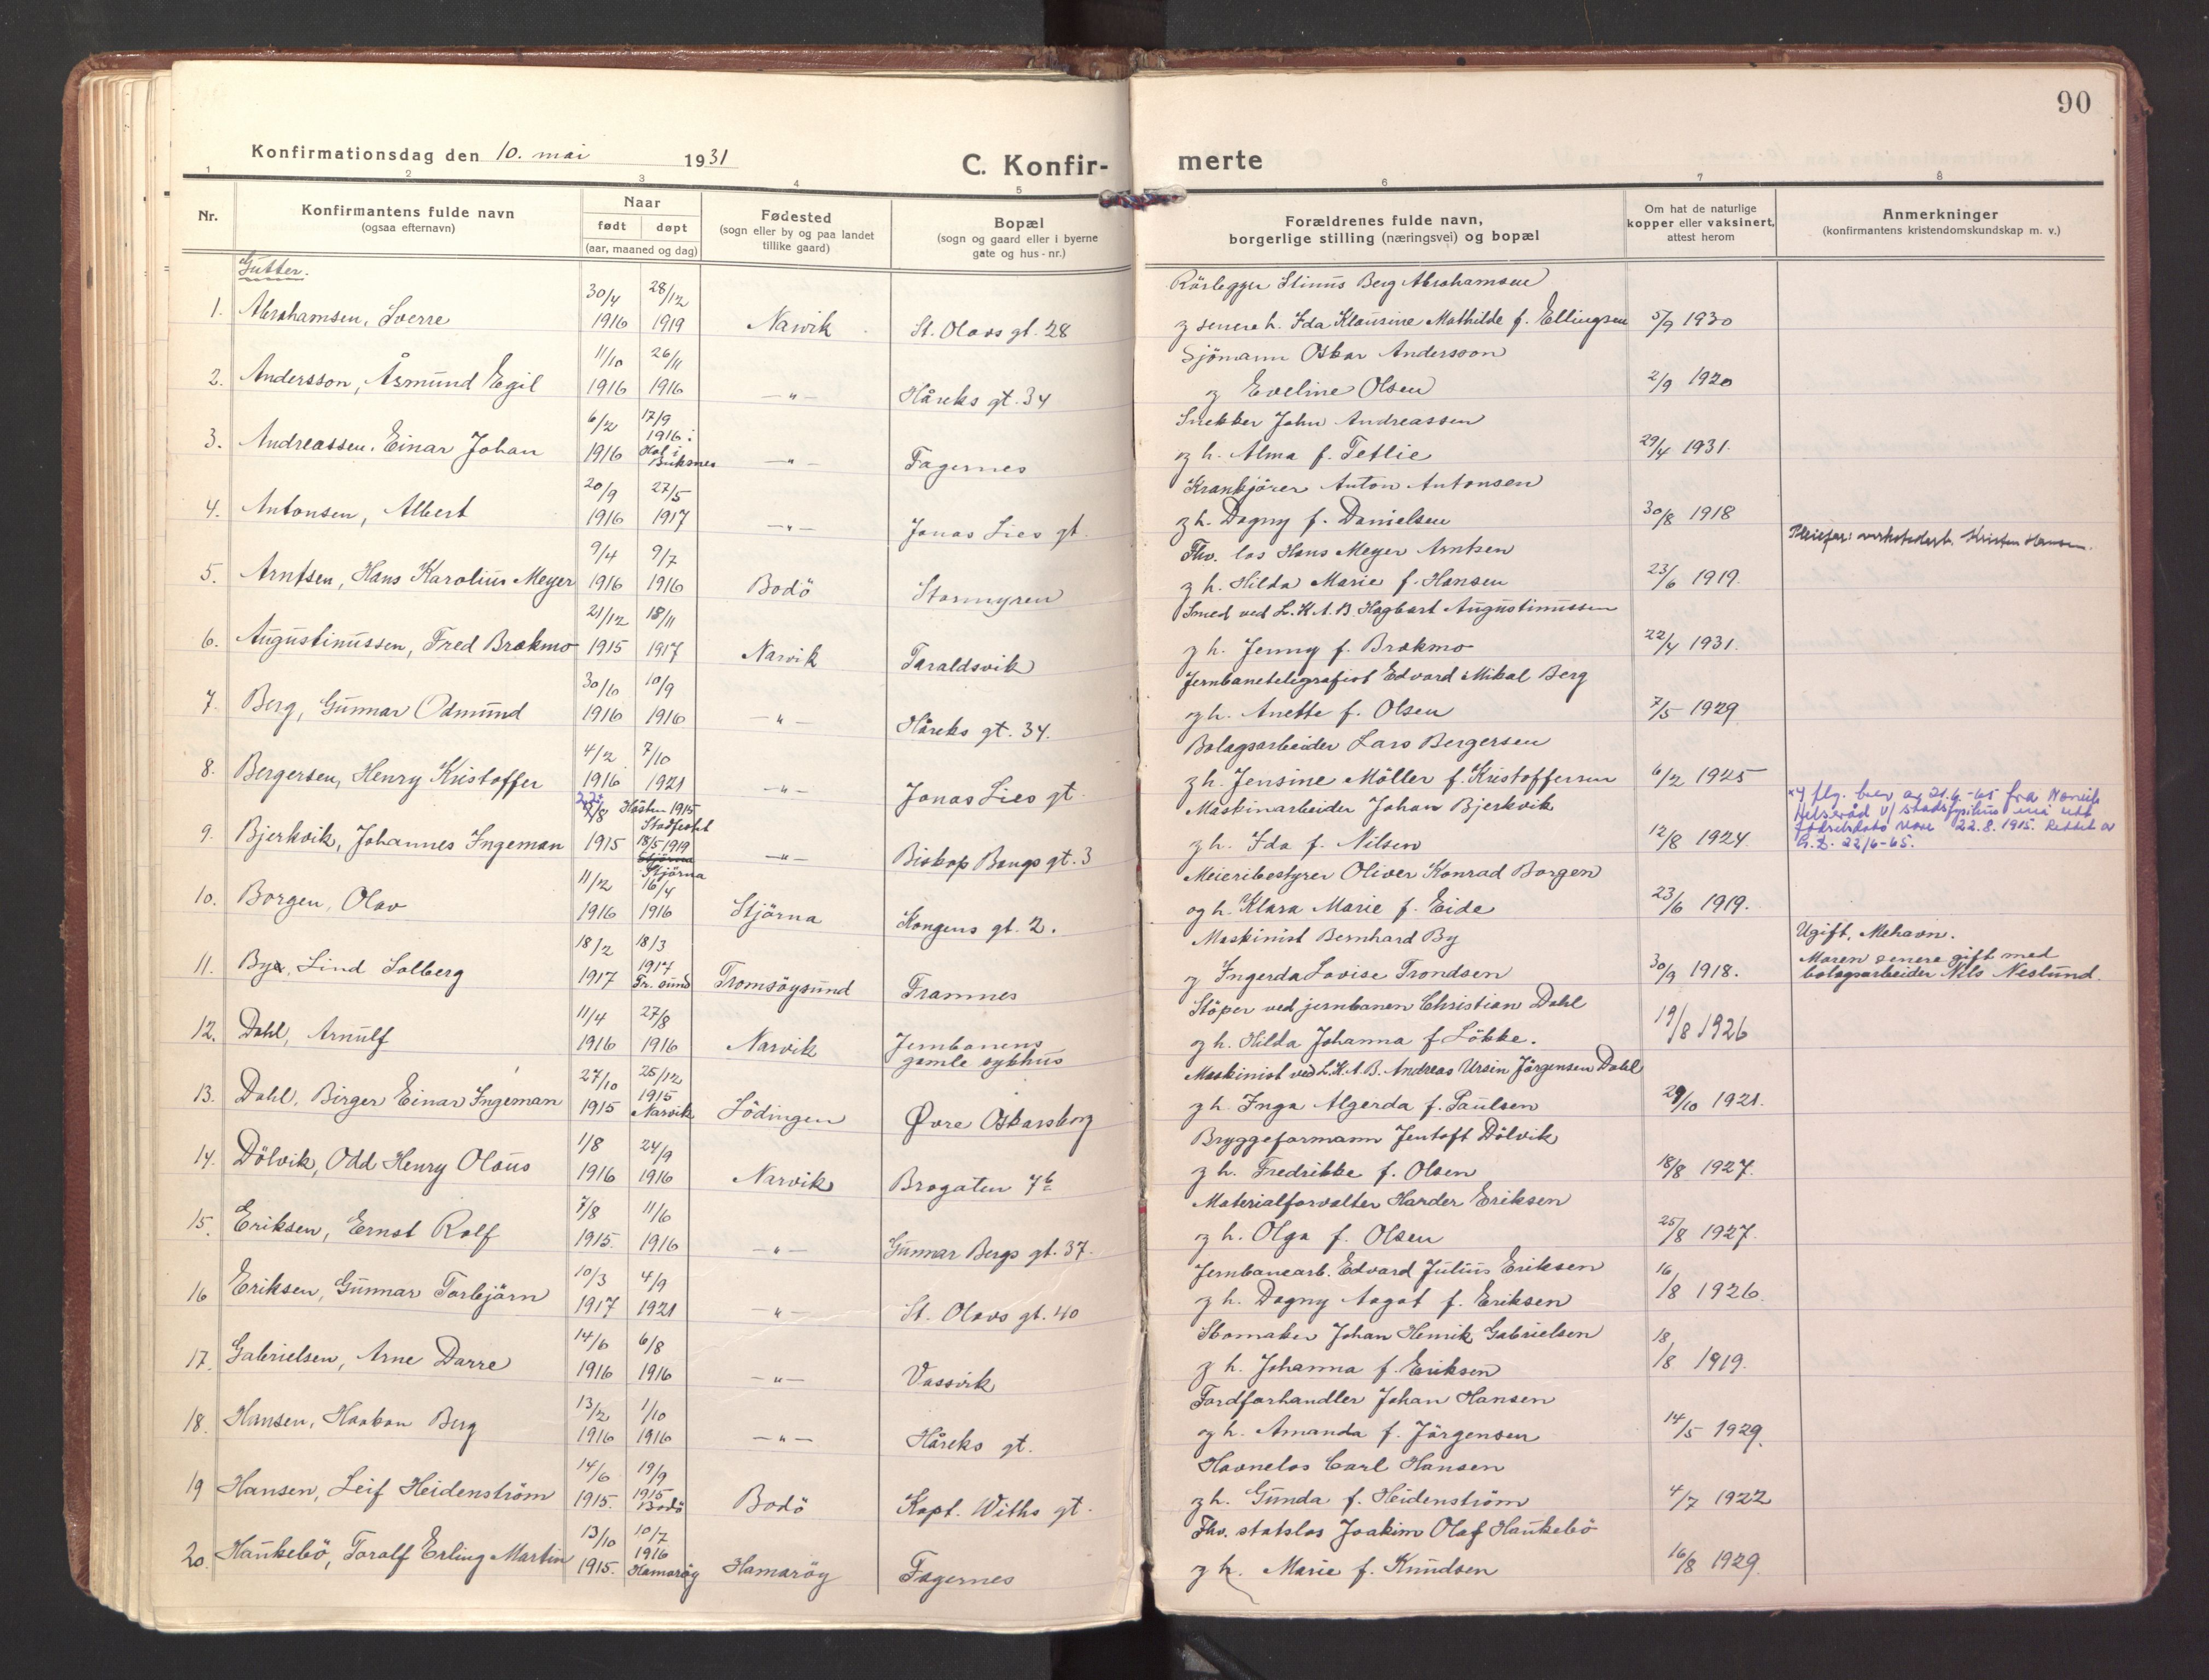 90
Konfirmationsdag den 10. mai 1931
C. Konfir-
merte
1 2 3 4 5 6 7 8
Nr.
Konfirmantens fulde navn
(ogsaa efternavn)
Naar
født døpt
(aar, maaned og dag)
Fødested
(sogn eller by og paa landet
tillike gaard)
Bopæl
(sogn og gaard eller i byerne
gate og hus-nr.)
Forældrenes fulde navn,
borgerlige stilling (næringsvei) og bopæl
Om hat de naturlige
kopper eller vaksinert,
attest herom
Anmerkninger
(konfirmantens kristendomskundskap m. v.)
Gutter.
30/4 28/12 Rörlegger Stinus Berg Abrahamsen
1. Abrahamsen, Sverre 1916 1919 Narvik St. Olavs gt. 28 g senere h. Ida Klausine Mathilde f. Ellingsen 5/9 1930
11/10 26/11 Sjömann Oskar Andersson
2. Andersson, Åsmund Egil 1916 1916 —"— Håreks gt. 34 g Eveline Olsen 2/9 1920
6/2 17/9 Snekker John Andreassen
3. Andreassen, Einar Johan 1916 1916 i Hol i Buksnes —"— Fagernes og h. Alma f. Tetlie 29/4 1931.
20/9 27/5 Krankjörer Anton Antonsen
4. Antonsen, Albert 1916 1917 —"— Jonas Lies gt. g h. Dagny f. Danielsen 30/8 1918
9/4 9/7 Fhv. los Hans Meyer Arntsen Pleiefar: verkstedarb. Kristen Hansen.
5. Arntsen, Hans Karolius Meyer 1916 1916 Bodö Stormyren g h. Hilda Marie f. Hansen 23/6 1919.
21/12 18/11 Smed ved L.K.A.B. Hagbart Augustinussen
6. Augustinussen, Fred Brakmo 1915 1917 Narvik Taraldsvik g h. Jenny f. Brakmo 22/4 1931.
30/6 10/9 Jernbanetelegrafist Edvard Mikal Berg
7. Berg, Gunnar Odmund 1916 1916 —"— Håreks gt. 34. og h. Anette f. Olsen 7/5 1929
4/2 7/10 Bolagsarbeider Lars Bergersen
8. Bergersen, Henry Kristoffer 1916 1921 —"— Jonas Lies gt. g h. Jensine Möller f. Kristoffersen 6/2 1925
22/8 Hösten 1915 Stadfestet Maskinarbeider Johan Bjerkvik
9. Bjerkvik, Johannes Ingeman 1915 18/5 1919 —"— Biskop Bangs gt. 3 g h. Ida f. Nilsen 12/8 1924.
x) flg. brev av 21.6-65 fra Narvik
Helseråd v/ stadsfysikus
fødselsdato være 22.8.1915. Rettet av
22/6-65.
11/2 Stjörna 16/4 Meieribestyrer Oliver Konrad Borgen
10. Borgen, Olav 1916 1916 Stjörna Kongens gt. 2. og h. Klara Marie f. Eide 23/6 1919.
18/2 18/3 Maskinist Bernhard By Ugift, Mehavn.
11. By, Lind Solberg 1917 1917 Tr. sund Tromsöysund Framnes g Ingerda Lovise Trondsen 30/9 1918. Moren senere gift med
bolagsarbeider Nils Neslund.
11/4 27/8 Stöper ved jernbanen Christian Dahl
12. Dahl, Arnulf 1916 1916 Narvik Jernbanens gamle sykhus og h. Hilda Johanna f Lökke. 19/8 1926
27/10 25/12 Maskinist ved L.K.A.B. Andreas Ursin Jörgensen Dahl
13. Dahl, Birger Einar Ingeman 1915 1915 Narvik Lödingen Øvre Oskarsborg g h. Inga Algerda f. Paulsen 29/10 1921.
1/8 24/9 Bryggeformann Jentoft Dölvik
14. Dölvik, Odd Henry Olaus 1916 1916 Narvik Brogaten 7b g h. Fredrikke f. Olsen 18/8 1927.
7/8 11/6 Materialforvalter Harder Eriksen
15. Eriksen, Ernst Rolf 1915. 1916 —"— Gunnar Bergs gt. 37. og h. Olga f. Olsen 25/8 1927.
10/3 4/9 Jernbanearb. Edvard Julius Eriksen
16 Eriksen, Gunnar Torbjörn 1917 1921 —"— St. Olavs gt. 40 g h. Dagny Aagot f. Eriksen 16/8 1926.
14/6 6/8 Skomaker Johan Henrik Gabrielsen
17. Gabrielsen, Arne Darre 1916 1916 —"— Vassvik g h. Johanna f. Eriksen 18/8 1919.
13/2 1/10 Fordforhandler Johan Hansen
18. Hansen, Haakon Berg 1916 1916 —"— Håreks gt. og h. Amanda f. Jörgensen 14/5 1929.
14/6 19/9 Havnelos Carl Hansen
19 Hansen, Leif Heidenström 1915. 1915 Bodö Bodö Kapt. Withs gt. g h. Gunda f. Heidenström 4/7 1922
13/10 10/7 Fhv. statslos Joakim Olaf Haukebö
20. Haukebö, Toralf Erling Martin 1915. 1916 Hamaröy Hamaröy Fagernes g h. Marie f. Knudsen 16/8 1929.